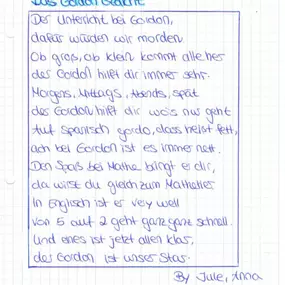 Das Gordon Gedicht
Der Unterricht bei Gordon,
dafür würden wir morden.
Ob gros, ob klein kommt alle her
der Gordon hilft dir immer sehr.
Morgens, Mittags, Abends, spät
der Gordon hilft dir wo's nur geht
Auf Spanisch gordo, dass heist fett,
ach bei Gordon ist es immer nett.
Den Spaß bei Mathe bringt er dir,
da wirst du gleich zum Mathetier
In Englisch ist er very well
von 5 auf 2 geht ganz ganz schnell.
Und eines ist jetzt allen klar,
der Gordon ist unser Star.
By Jule, Anna